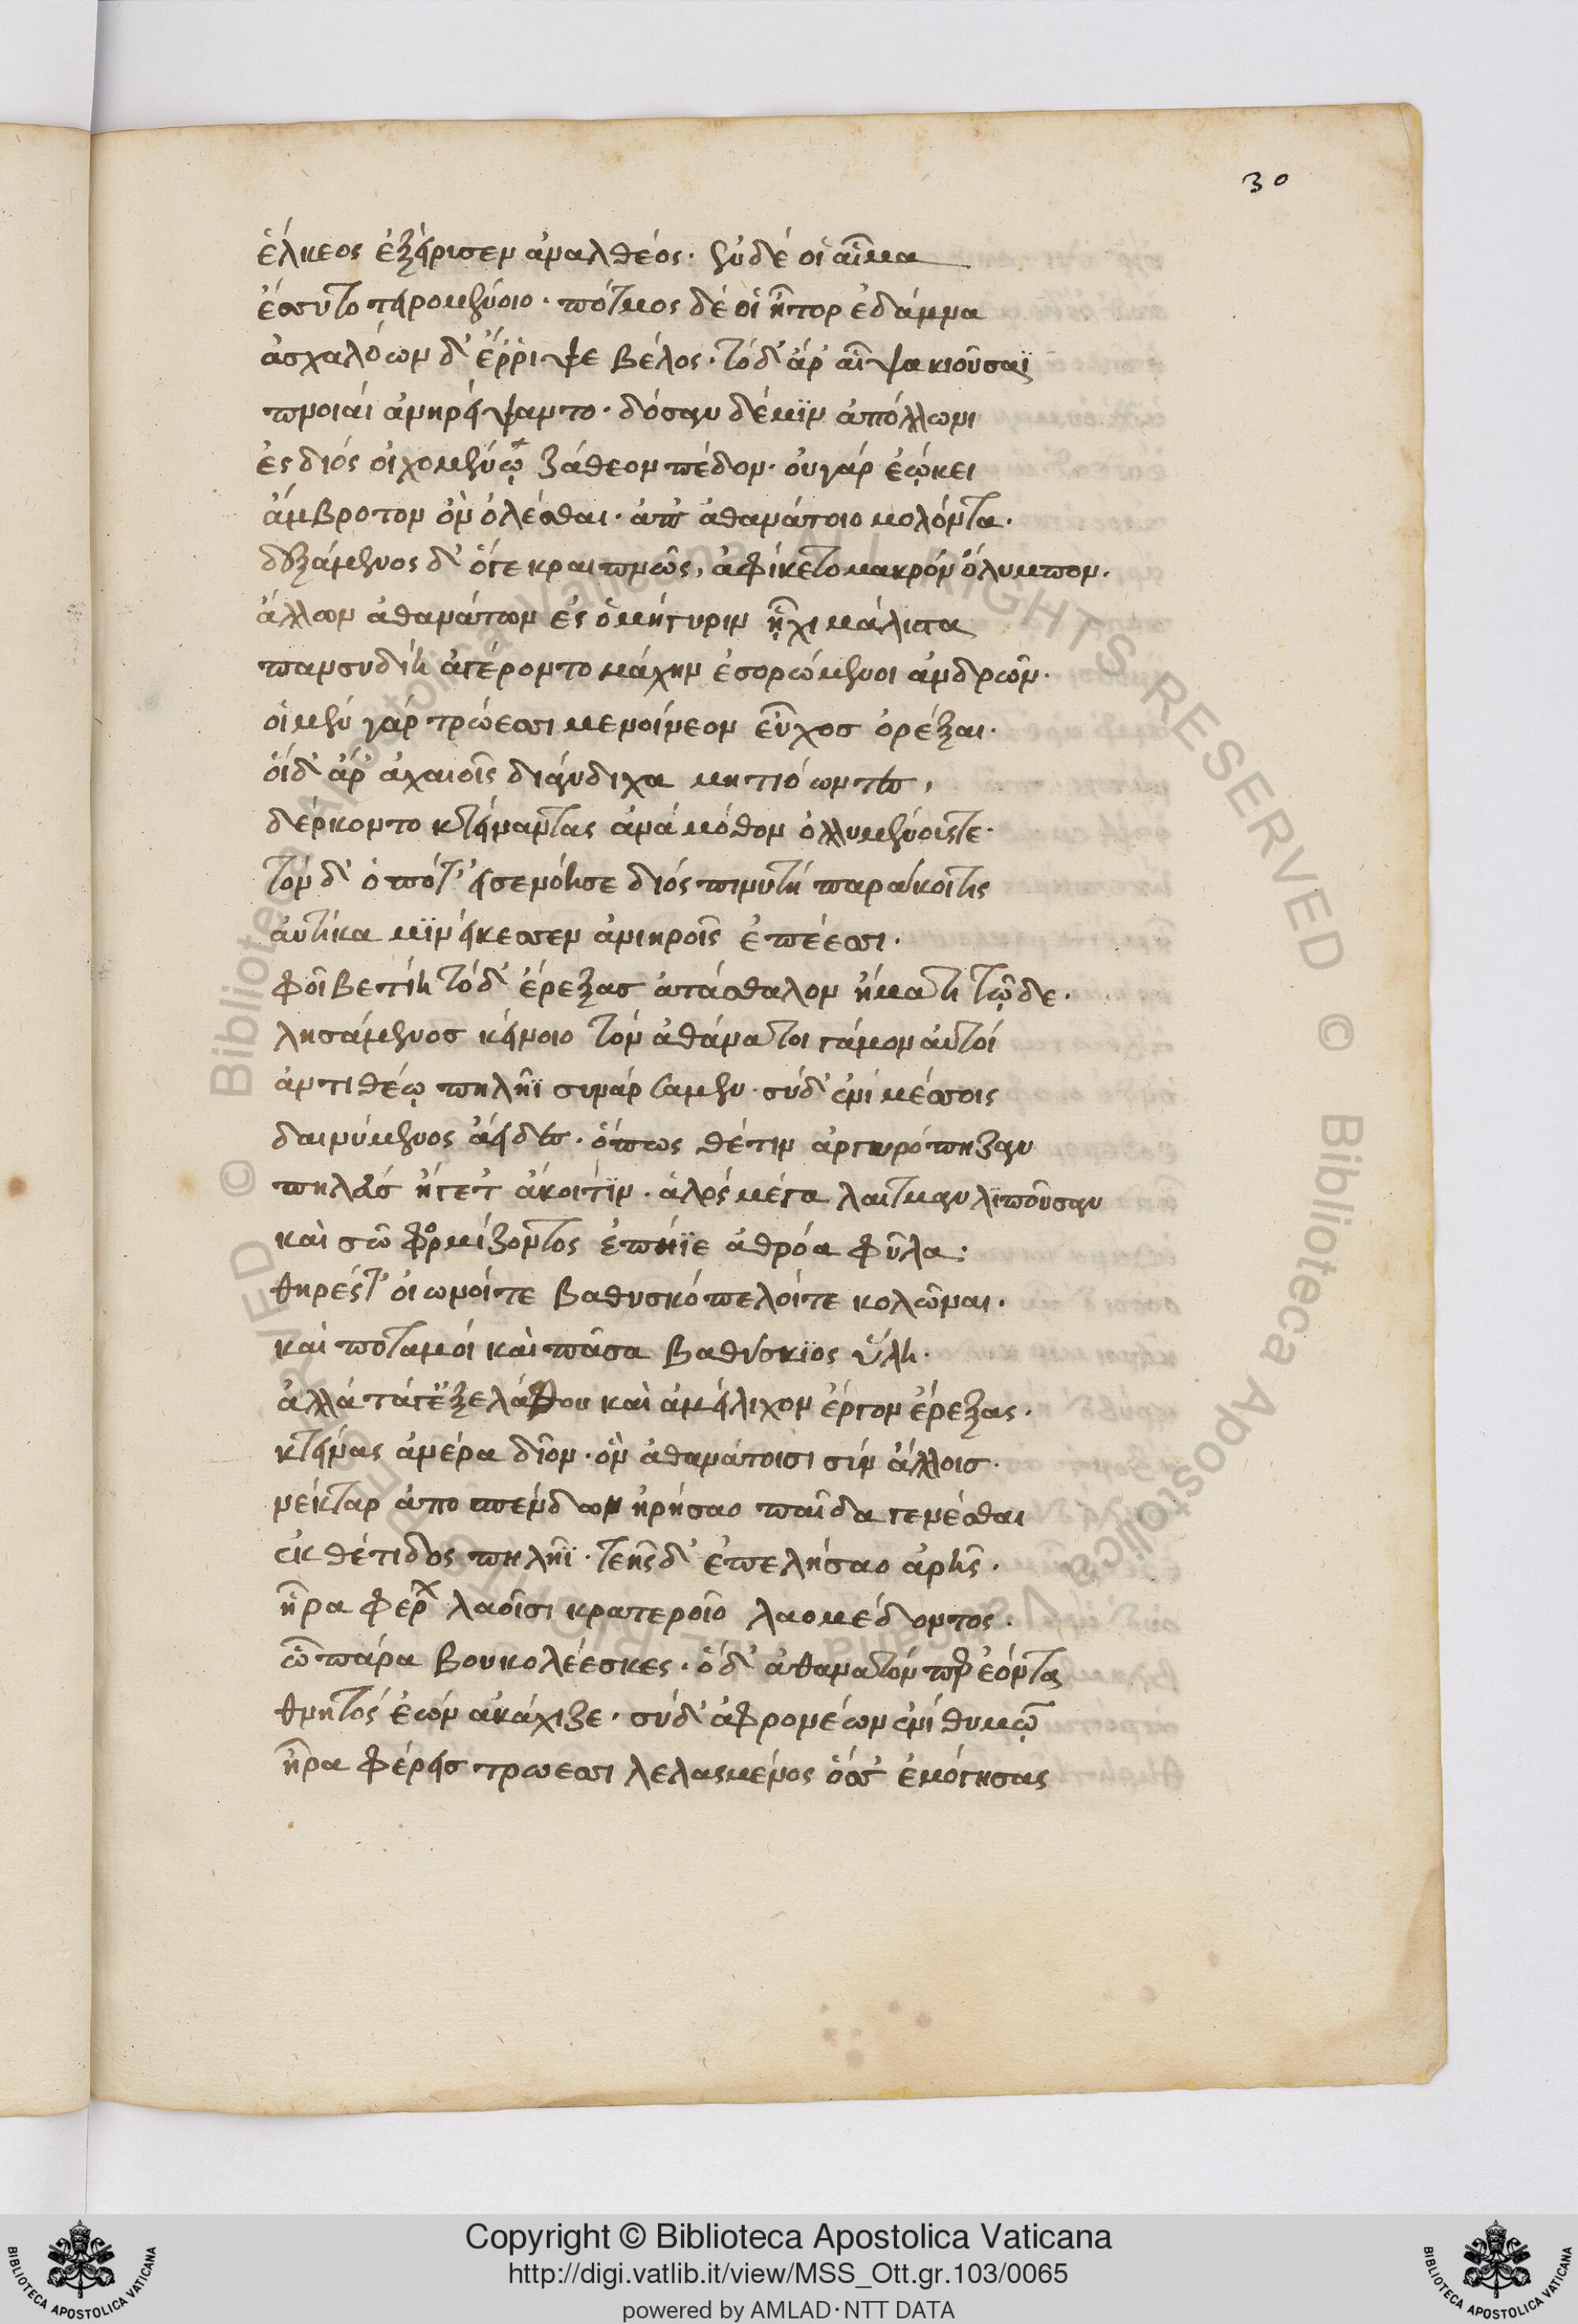 30
ἕλκεος ἐξείρυσεν ἀναλθέος· ἐκ δέ οἱ αἷμα
ἔσσυτο τειρομένοιο· πότμος δέ οἱ ἦτορ ἐδάμνα
ἀσχαλόων δ' ἔρριψε βέλος· τὸ δ' ἄρ' αἶψα κιοῦσαι
πνοιαὶ ἀνηρείψαντο· δόσαν δέ μϊν ἀπόλλωνι
ἐς διὸς οἰχομένῳ ζάθεον πέδον· οὐ γὰρ ἐῴκει
ἄμβροτον ὂν ὀλέσθαι· ἀπ' ἀθανάτοιο μολόντα.
δεξάμενος δ' ὅγε κραιπνῶς, ἀφίκετο μακρὸν ὄλυμπον.
ἄλλων ἀθανάτων ἐς ὁμήγυριν ᾗχι μάλιστα
πανσυδίη ἀγέροντο μάχην ἐσορώμενοι ἀνδρῶν.
οἱ μὲν γὰρ τρώεσσι μενοίνεον εὖχος ὀρέξαι.
οἱ δ' ἄρ' ἀχαιοῖς διάνδιχα μητιόωντες,
δέρκοντο κτείναντας ἀνὰ μόθον ὀλλυμένοις τε.
τὸν δ' ὁπότ' εἰσενόησε διὸς πινυτὴ παράκοιτις
αὐτίκα μϊν νείκεσσεν ἀνιηροῖς ἐπέεσσι.
φοῖβε τίη τόδ' ἔρεξας ἀτάσθαλον ἤματι τῷδε.
λησάμενος κείνοιο τὸν ἀθάνατοι γάμον αὐτοὶ
ἀντιθέῳ πηλῆϊ συνάρσαμεν· σὺ δ' ἐνὶ μέσσοις
δαινύμενος ἄειδες· ὅπως θέτιν ἀργυρόπηζαν
πηλεὺς ἤγετ' ἄκοιτιν· ἁλὸς μέγα λαῖτμαν λϊποῦσαν
καὶ σῶ φορμίζοντος ἐπήϊε ἀθρόα φῦλα·
θῆρές τ' οἰωνοί τε βαθυσκόπελοί τε κολῶναι.
καὶ ποταμοὶ καὶ πᾶσα βαθύσκϊος ὕλη.
ἀλλὰ τάγ' ἐξελάθου καὶ ἀμείλιχον ἔργον ἔρεξας.
κτείνας ἀνέρα δῖον· ὃν ἀθανάτοισι σὺν ἄλλοις.
νέκταρ ἀποσπένδων ἠρήσαο παῖδα γενέσθαι
ἐκ θέτιδος πηλῆϊ· τεῆς δ' ἐπελήσαο ἀρῆς.
ἦρα φέρων λαοῖσι κρατεροῖο λαομέδοντος.
ᾧ πάρα βουκολέεσκες· ὁ δ' ἀθάνατον περ ἐόντα
θνητὸς ἐὼν ἀκάχιζε· σὺ δ' ἀφρονέων ἐνὶ θυμῷ
ἦρα φέρεις τρώεσσι λελασμένος ὅσσ' ἐμόγησας
Copyright © Biblioteca Apostolica Vaticana
http://digi.vatlib.it/view/MSS_Ott.gr.103/0065
powered by AMLAD·NTT DATA